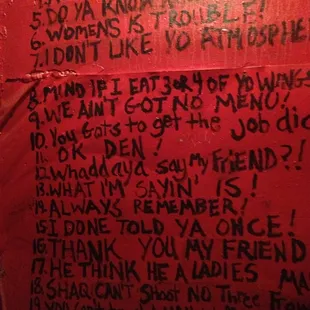 5. DO YA KNOW A
6. WOMENS IS TROUBLE!
7. I DON'T LIKE YO ATMOSPHE
8. MIND IF I EAT 3 OR 4 OF YO WINGS
9. WE AIN'T GOT NO MENU!
10. You Gots to get the job did
11. OK DEN!
12. Whaddaya say my FRIEND?!
13. WHAT I'M SAYIN' IS!
14. ALWAYS REMEMBER!
15. I DONE TOLD YA ONCE!
16. THANK YOU MY FRIEND
17. HE THINK HE A LADIES MA
18. SHAQ CAN'T SHOOT NO Three